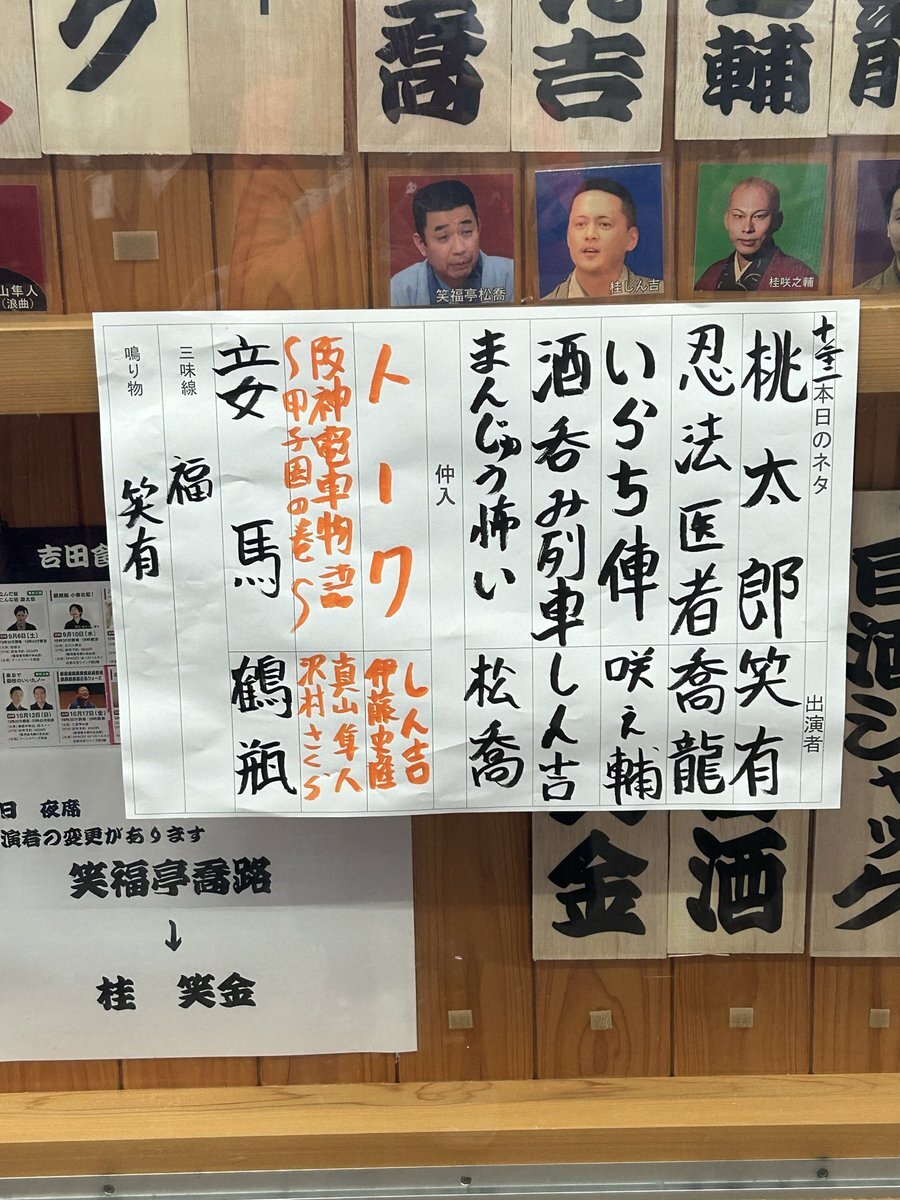 喬
吉
輔
ク
笑福亭松喬
桂しん吉
桂咲之輔
山隼人
(浪曲)
本日のネタ
出演者
桃太郎 笑有
忍法医者 喬龍
いらち俥 咲之輔
酒呑み列車 しん吉
まんじゅう怖い 松喬
仲入
トーク しん吉
伊藤史隆
阪神電車物語 真山隼人
~甲子園の巻~ 沢村さくら
妾馬 鶴瓶
三味線 福
鳴り物 笑有
吉田食
9月6日(土)
9月10日(水)
10月12日(日)
10月17日(金)
日 夜席
演者の変更があります
笑福亭喬路
↓
桂 笑金
金
酒
目酒ジャック